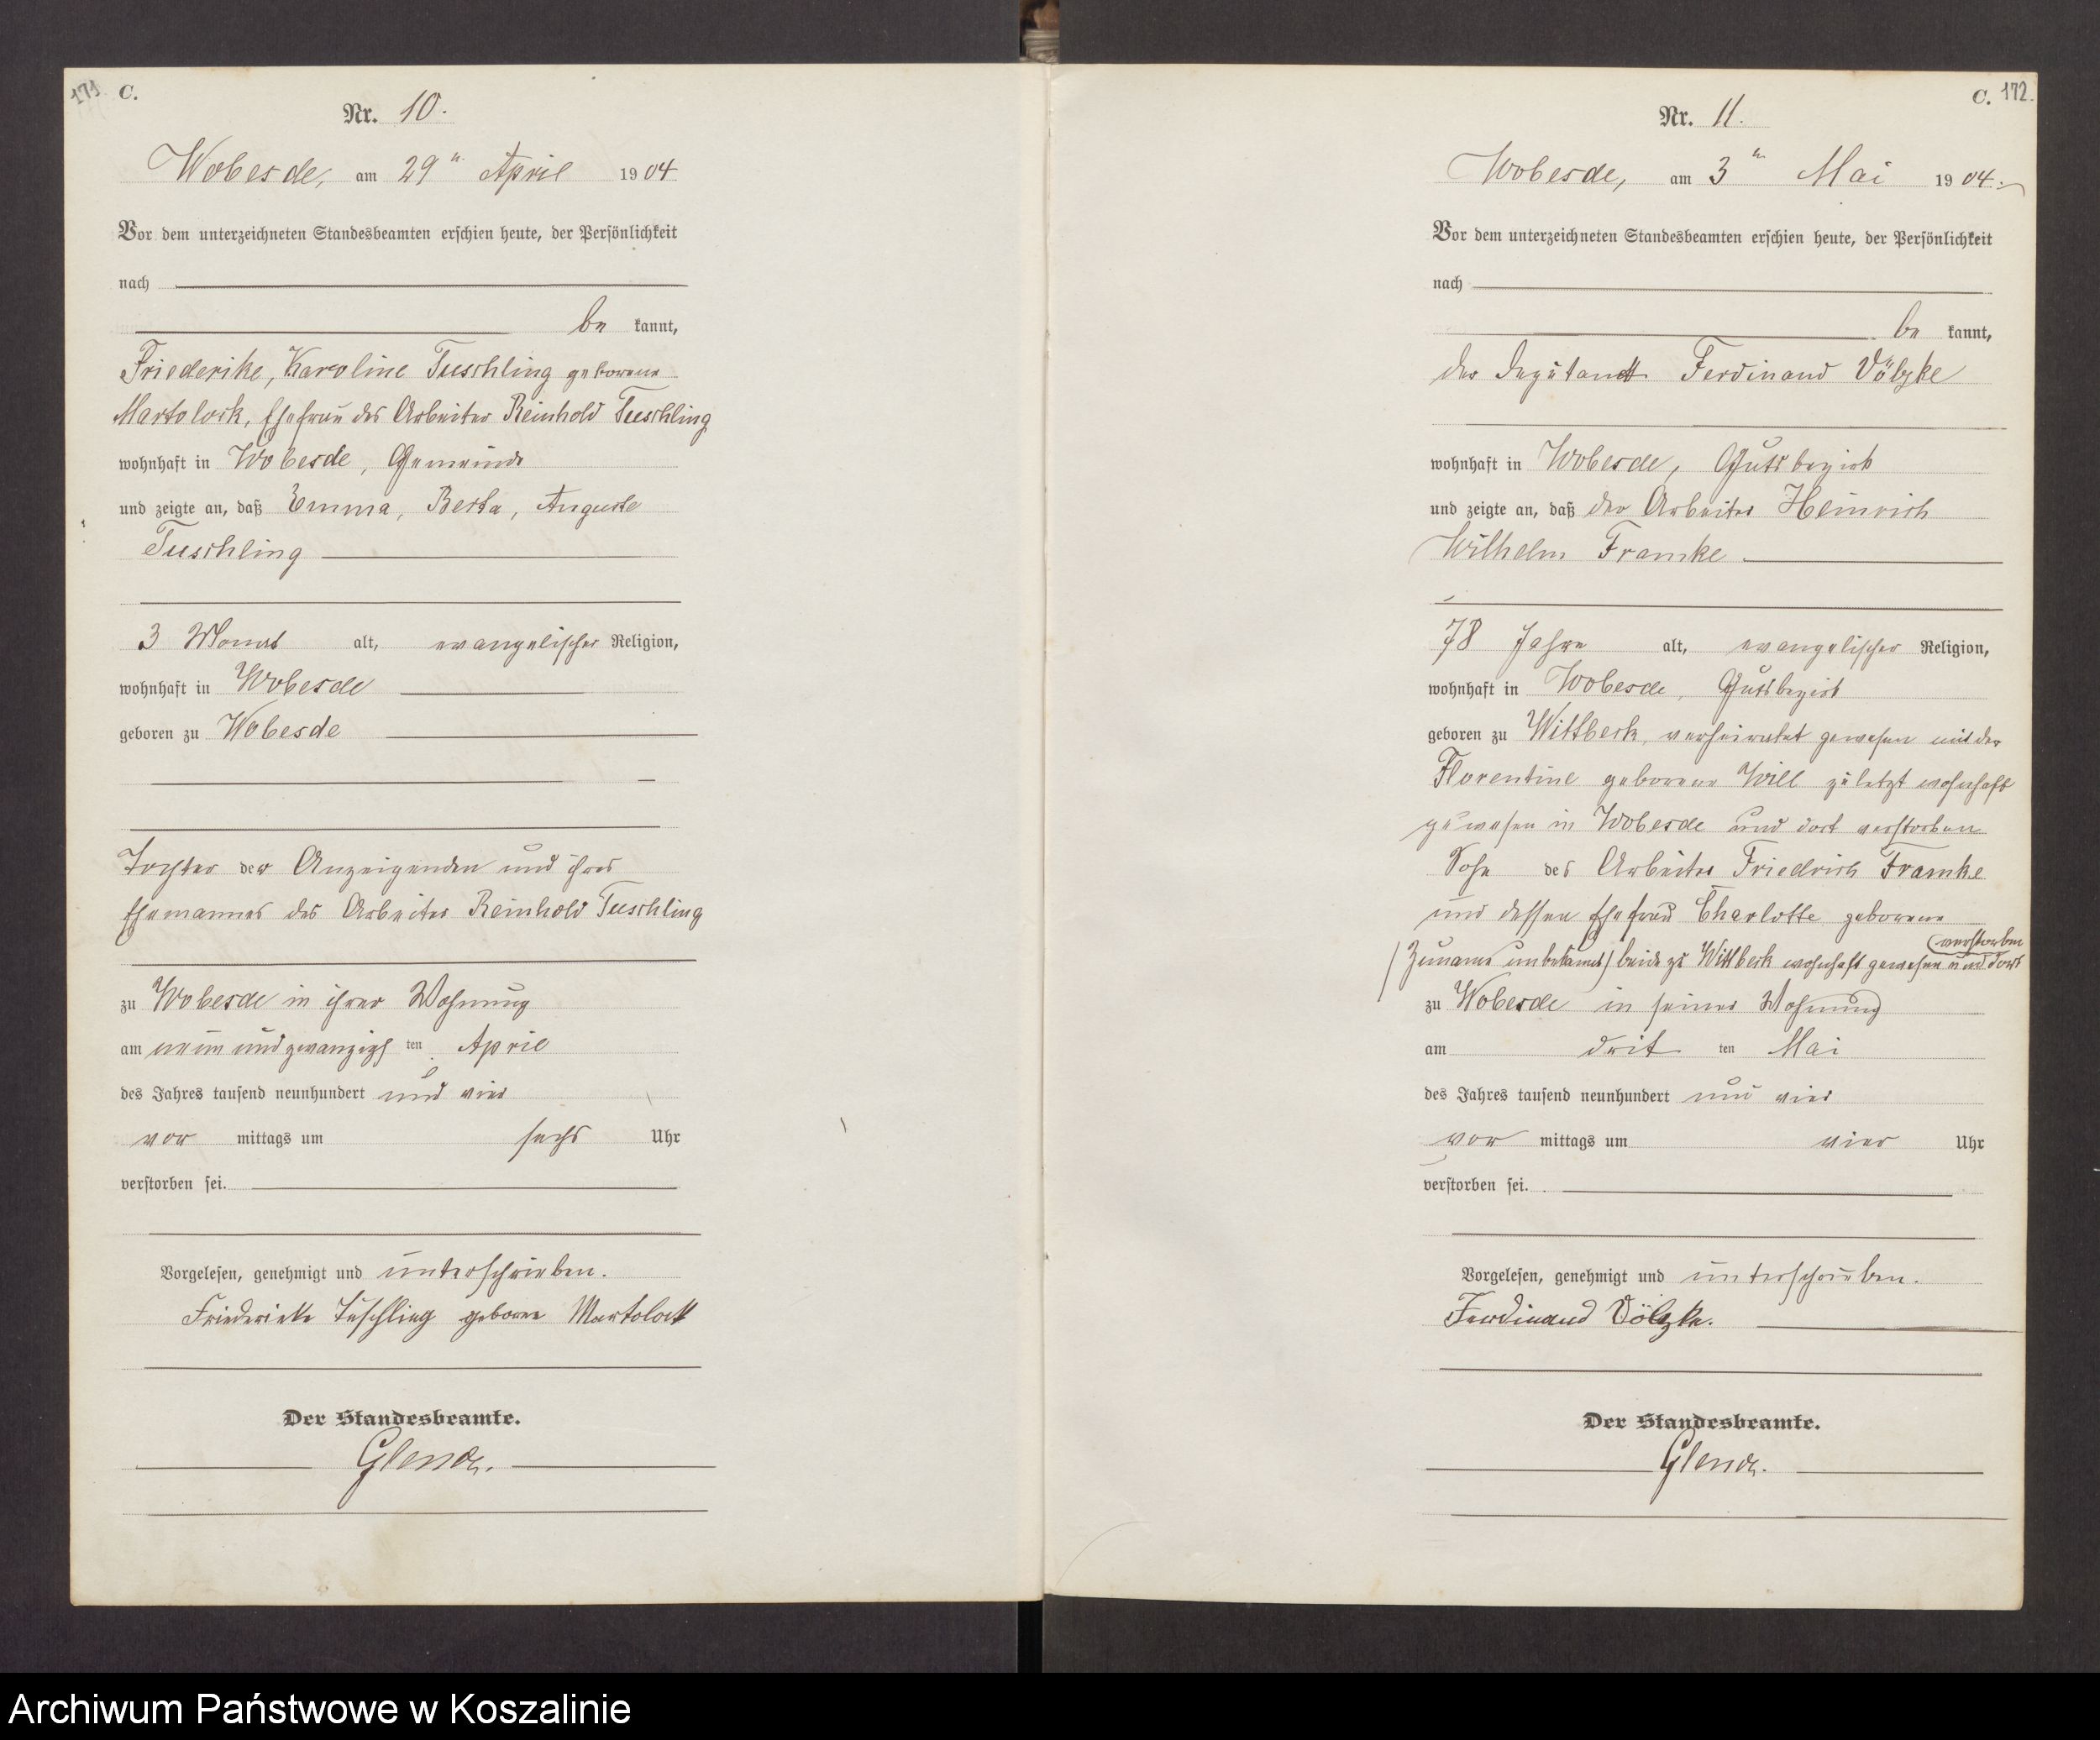 171 C.
Nr. 10.
Wobesde, am 29ten April 1904
Vor dem unterzeichneten Standesbeamten erschien heute, der Persönlichkeit
nach
be kannt,
Friederike, Karoline Tuschling geborene
Martolock, Ehefrau des Arbeiter Reinhold Tuschling
wohnhaft in Wobesde, Gemeinde
und zeigte an, daß Emma, Berta, Auguste
Tuschling
3 Monat alt, evangelischer Religion,
wohnhaft in Wobesde
geboren zu Wobesde
Tochter der Anzeigenden und ihres
Ehemannes des Arbeiter Reinhold Tuschling
zu Wobesde in ihrer Wohnung
am neun und zwanzigsten April
des Jahres tausend neunhundert und vier
vor mittags um sechs Uhr
verstorben sei.
Vorgelesen, genehmigt und unterschrieben.
Friederike Tuschling geborne Martolock
Der Standesbeamte.
C. 172.
Nr. 11.
Wobesde, am 3ten Mai 1904.
Vor dem unterzeichneten Standesbeamten erschien heute, der Persönlichkeit
nach
be kannt,
der Deputant Ferdinand Völzke
wohnhaft in Wobesde, Gutsbezirk
und zeigte an, daß der Arbeiter Heinrich
Wilhelm Framke
78 Jahre alt, evangelischer Religion,
wohnhaft in Wobesde, Gutsbezirk
geboren zu Wittbeck, verheiratet gewesen mit der
Florentine geborene Will zuletzt wohnhaft
gewesen in Wobesde und dort verstorben
Sohn des Arbeiter Friedrich Framke
und dessen Ehefrau Charlotte geborene
(Zuname unbekannt) beide zu Wittbeck wohnhaft gewesen und dort verstorben
zu Wobesde in seiner Wohnung
am dritten Mai
des Jahres tausend neunhundert und vier
vor mittags um vier Uhr
verstorben sei.
Vorgelesen, genehmigt und unterschrieben.
Ferdinand Völzke.
Der Standesbeamte.
Archiwum Państwowe w Koszalinie